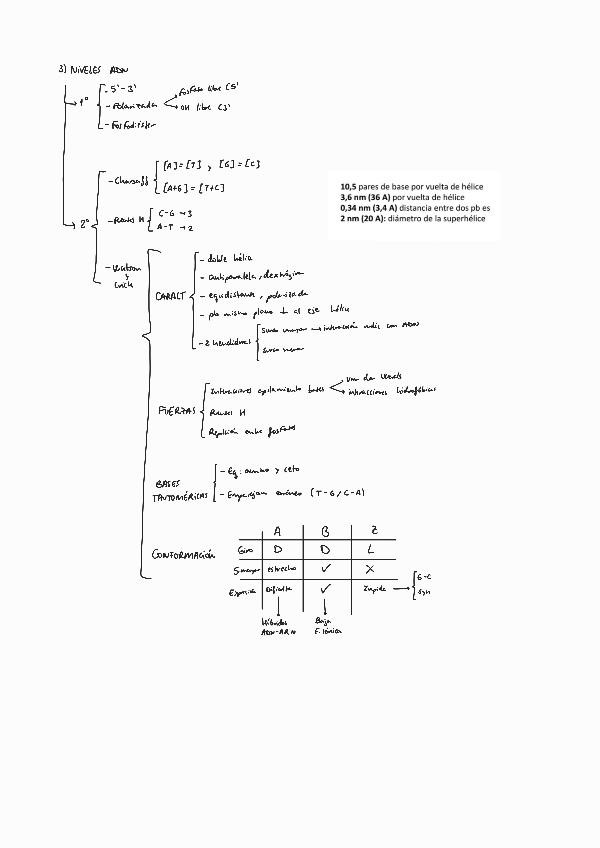 3) NIVELES ADN
1º
- 5' - 3'
- Polarizada
Fosfato libre C5'
OH libre C3'
- Fosfodiéster
2º
- Chargaff
[A] = [T] , [G] = [C]
[A+G] = [T+C]
- Puentes H
C-G → 3
A-T → 2
- Watson y Crick
CARACT
- doble hélice
- antiparalela, dextrógira
- equidistante, polarizada
- pb mismo plano ⊥ al eje hélice
- 2 hendiduras
Surco mayor → interacción
con ADN
Surco menor
10,5 pares de base por vuelta de hélice
3,6 nm (36 A) por vuelta de hélice
0,34 nm (3,4 A) distancia entre dos pb es
2 nm (20 A): diámetro de la superhélice
FUERZAS
Interacciones apilamiento bases
Van der Waals
interacciones hidrofóbicas
Puentes H
Repulsión entre fosfatos
BASES TAUTOMÉRICAS
- Eq: amino y ceto
- Emparejam erróneo (T-G / C-A)
CONFORMACIÓN
A B Z
Giro D D L
S mayor estrecho ✓ X
✓
Híbridos ADN-ARN
Baja F. Iónica
G-C
syn